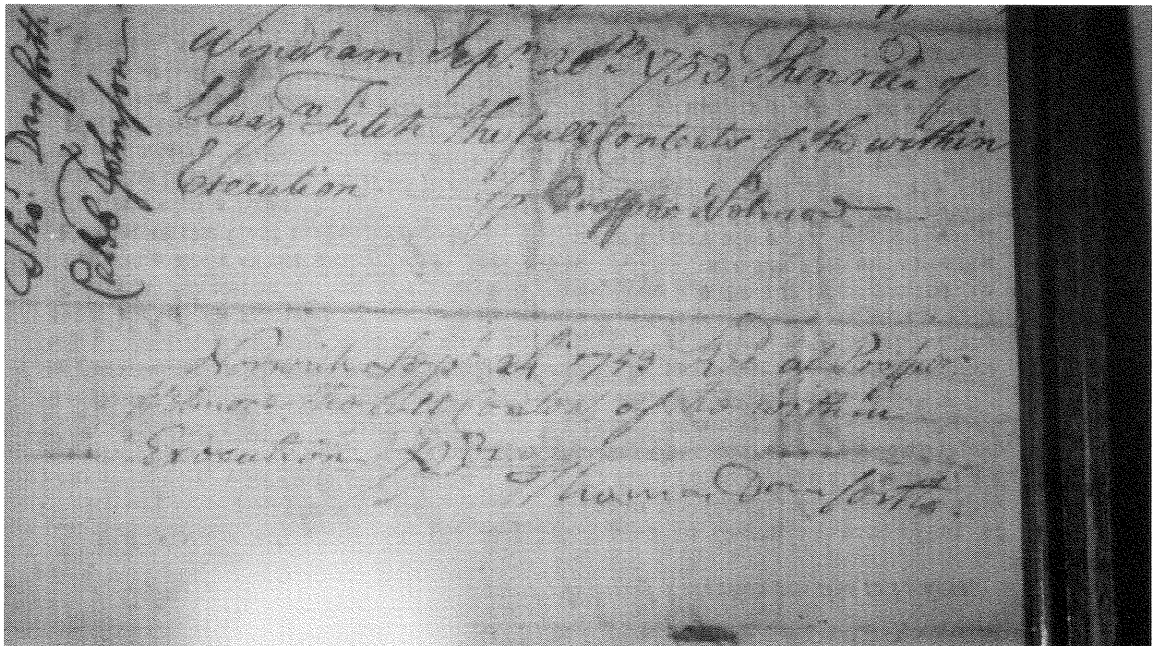 Tho.s Danforth
Caleb Johnson
Windham Sep.r 20th 1753 Then rec'd of
Eleaz.r Fitch the full Contents of the within
Execution pr Prosper Wetmore
Norwich Sep.r 24th 1753 Rec'd of Prosper
Wetmore the full Contents of the within
Execution pr
Thomas Danforth